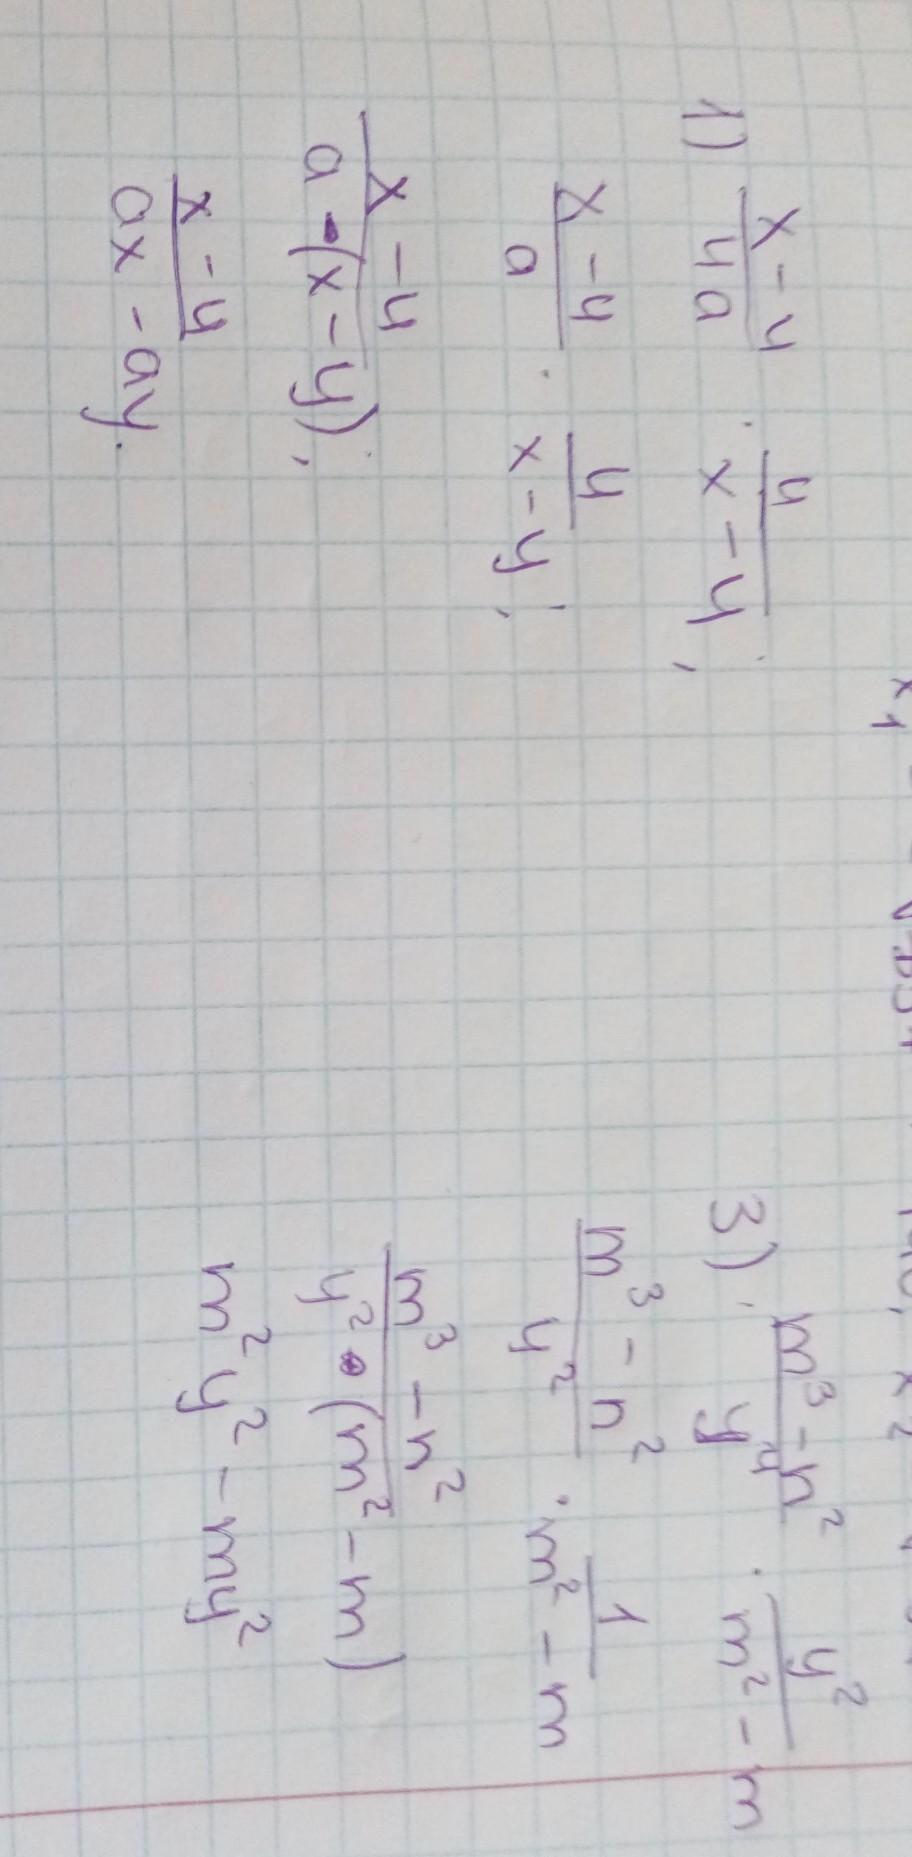 1) \frac{x-y}{ya} \cdot \frac{y}{x-y};
\frac{x-y}{a} \cdot \frac{y}{x-y};
\frac{x-y}{a \cdot (x-y)};
\frac{x-y}{ax-ay}.
3) \frac{m^3-n^2}{y^4} \cdot \frac{y^2}{m^2-m}
\frac{m^3-n^2}{y^2} \cdot \frac{1}{m^2-m}
\frac{m^3-n^2}{y^2 \cdot (m^2-m)}
m^2y^2-my^2